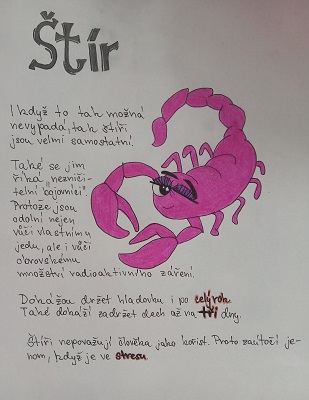 Štír
I když to tak možná
nevypadá, tak štíři
jsou velmi samostatní.
Také se jim
říká „nezniči-
telní bojovníci".
Protože jsou
odolní nejen
vůči vlastnímu
jedu, ale i vůči
obrovskému
množství radioaktivního záření.
Dokážou držet hladovku i po celý rok.
Také dokáží zadržet dech až na tři dny.
Štíři nepovažují člověka jako kořist. Proto zaútočí je-
nom, když je ve stresu.